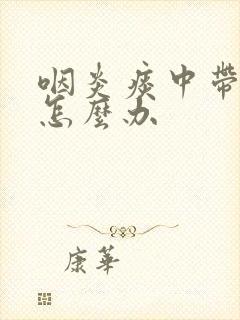 咽炎痰中帶
怎麼办
康華